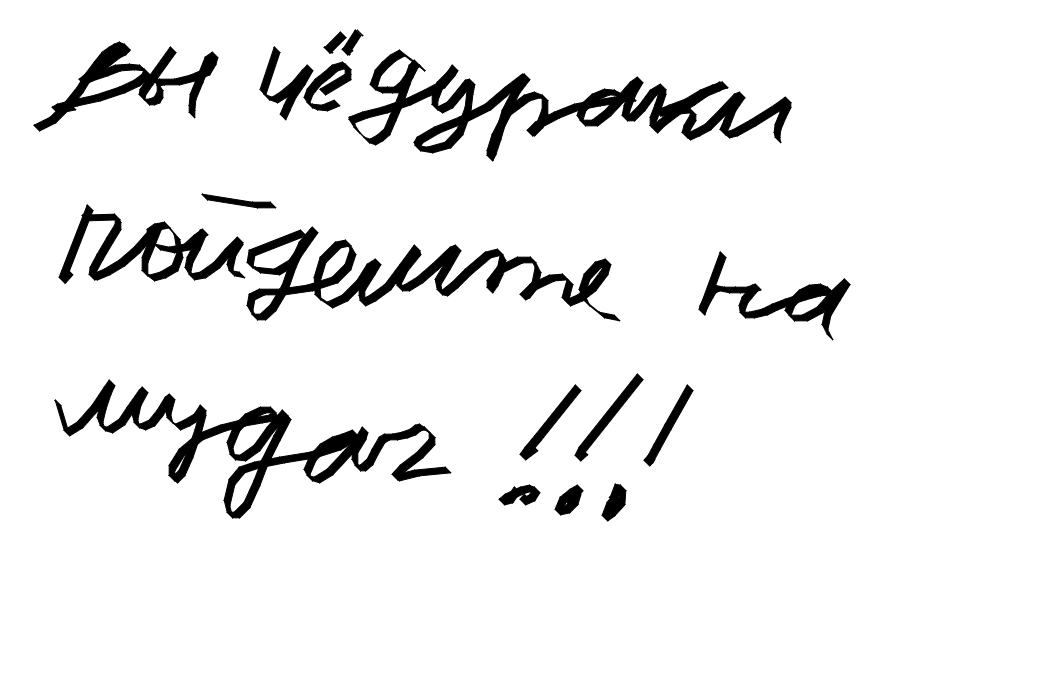 Вы чё дураки
пойдемте на
мудач !!!